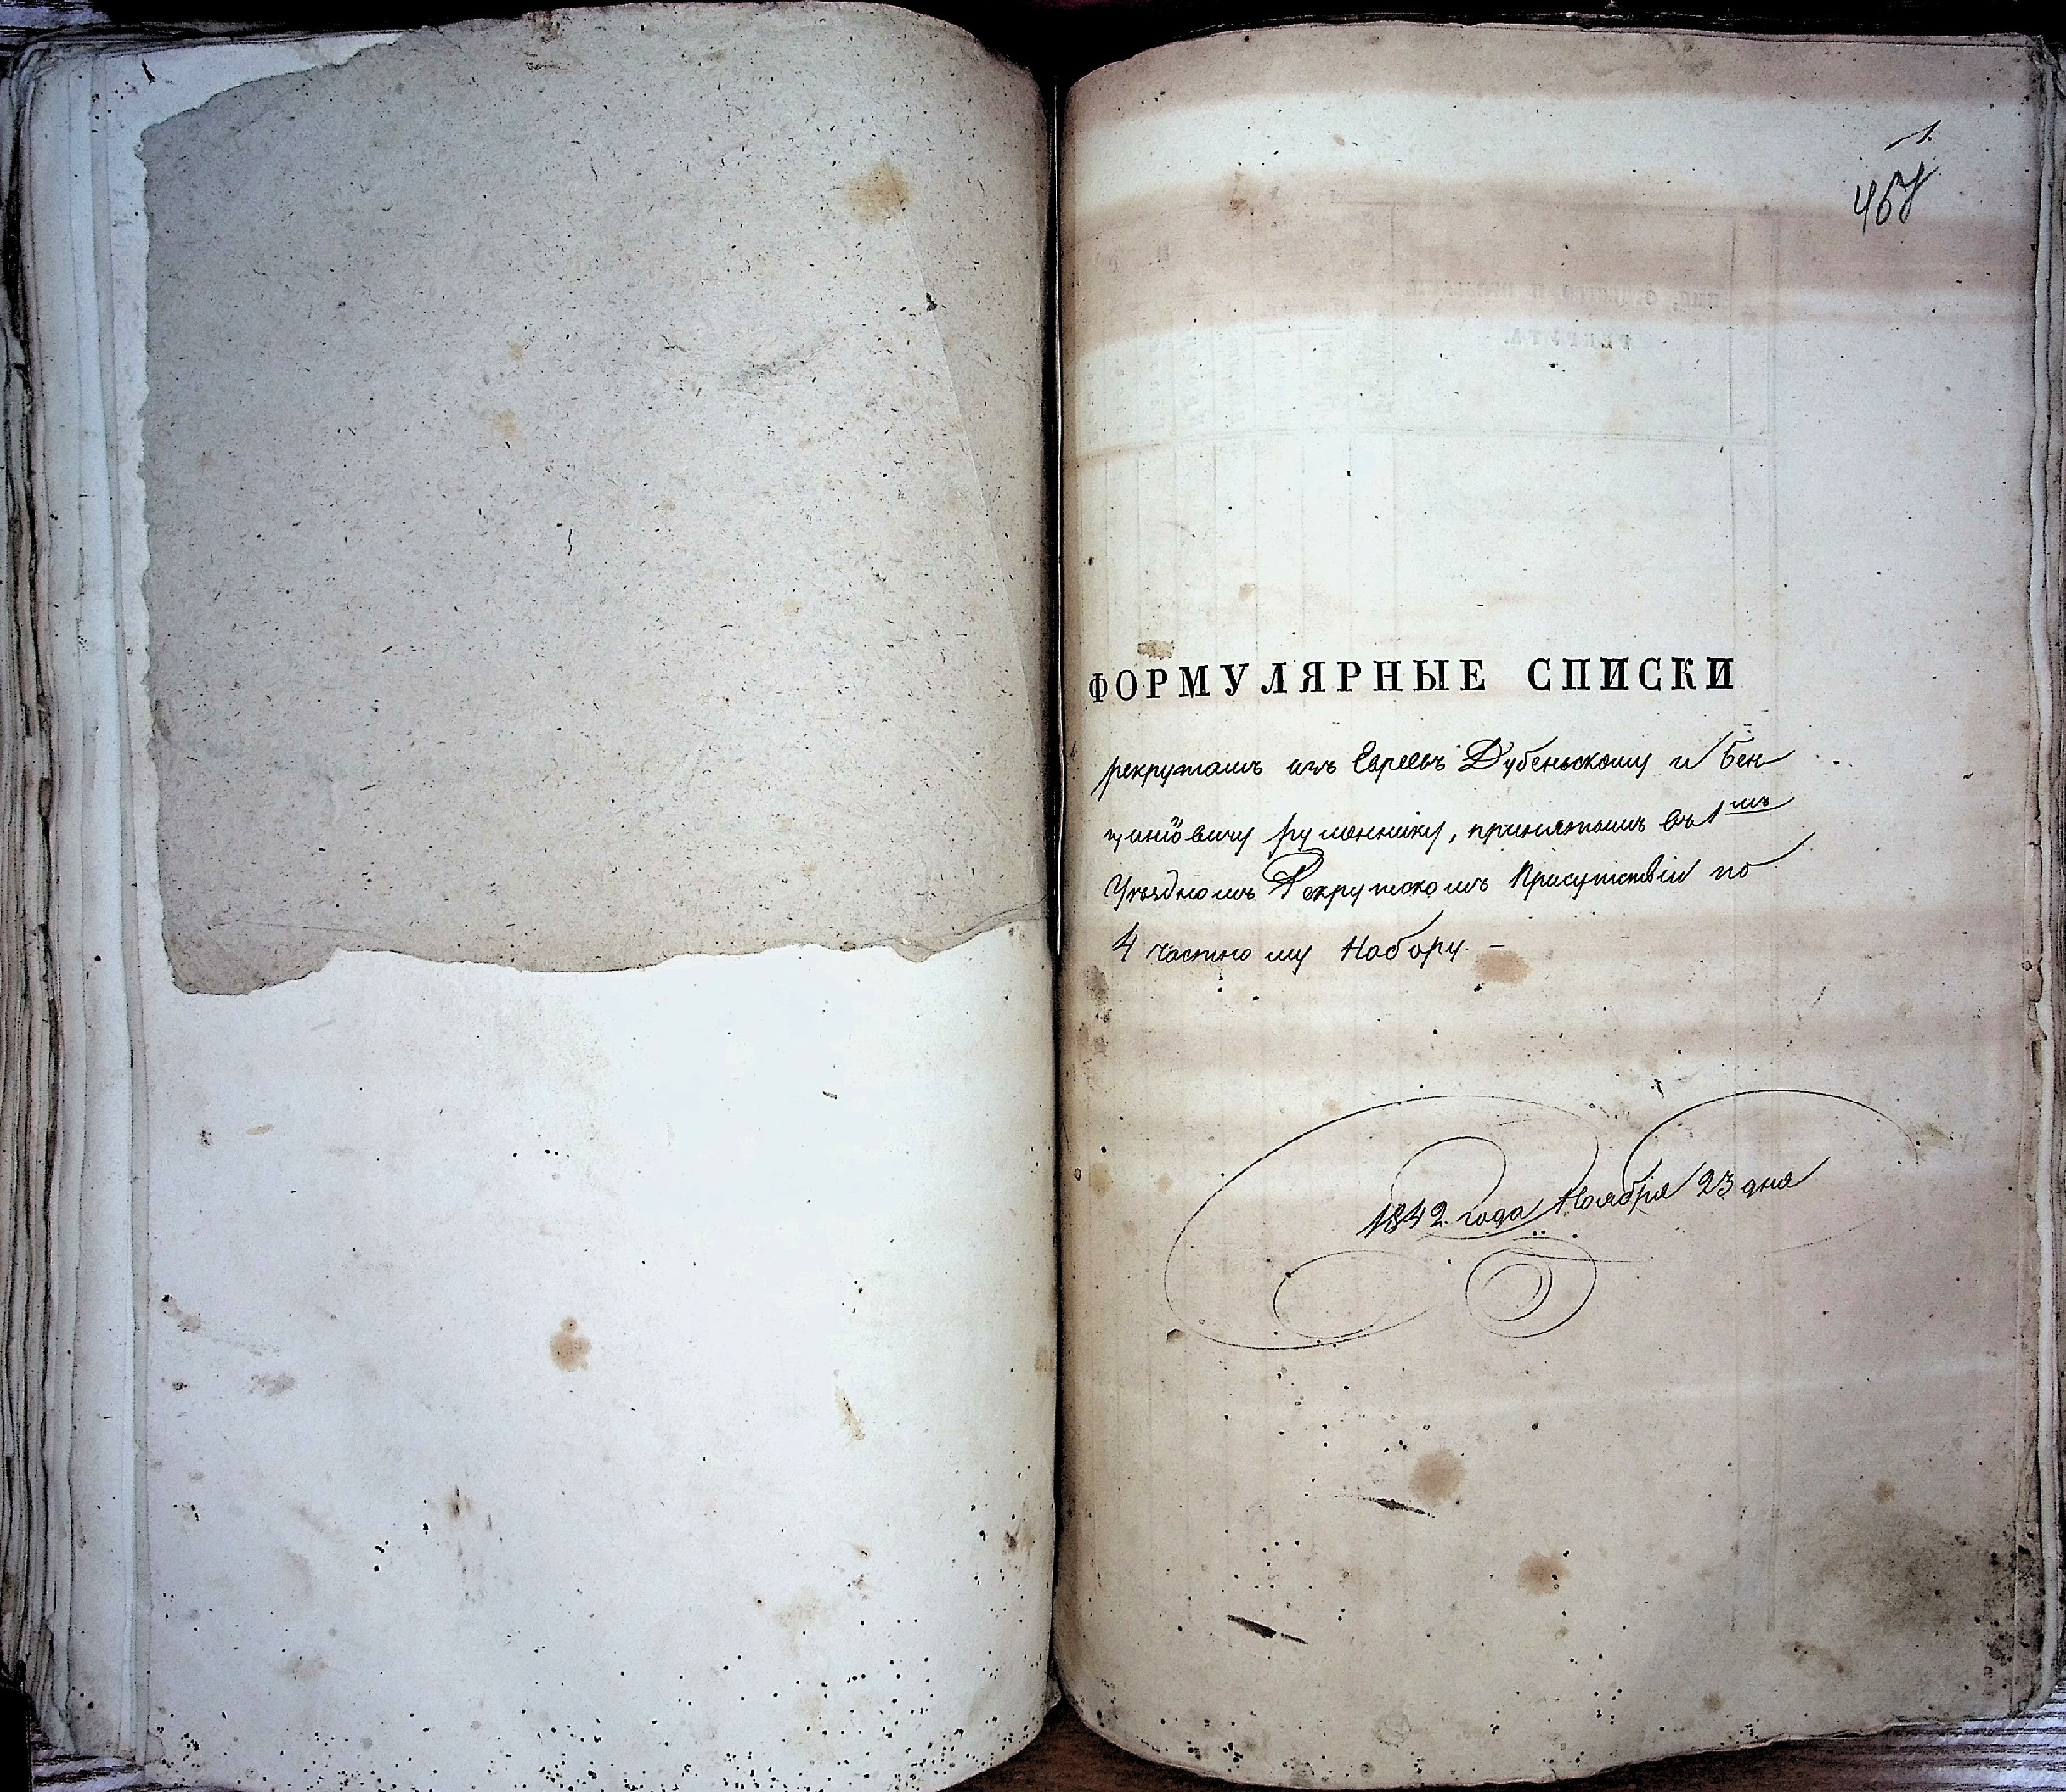 1.
457
ФОРМУЛЯРНЫЕ СПИСКИ
рекрутамъ изъ Евреевъ Дубенскому и Бен
циновичу , принятымъ въ 1мъ
Уѣздномъ Рекрутскомъ Присутствіи по
4 частному Набору. –
1842 года Ноября 23 дня